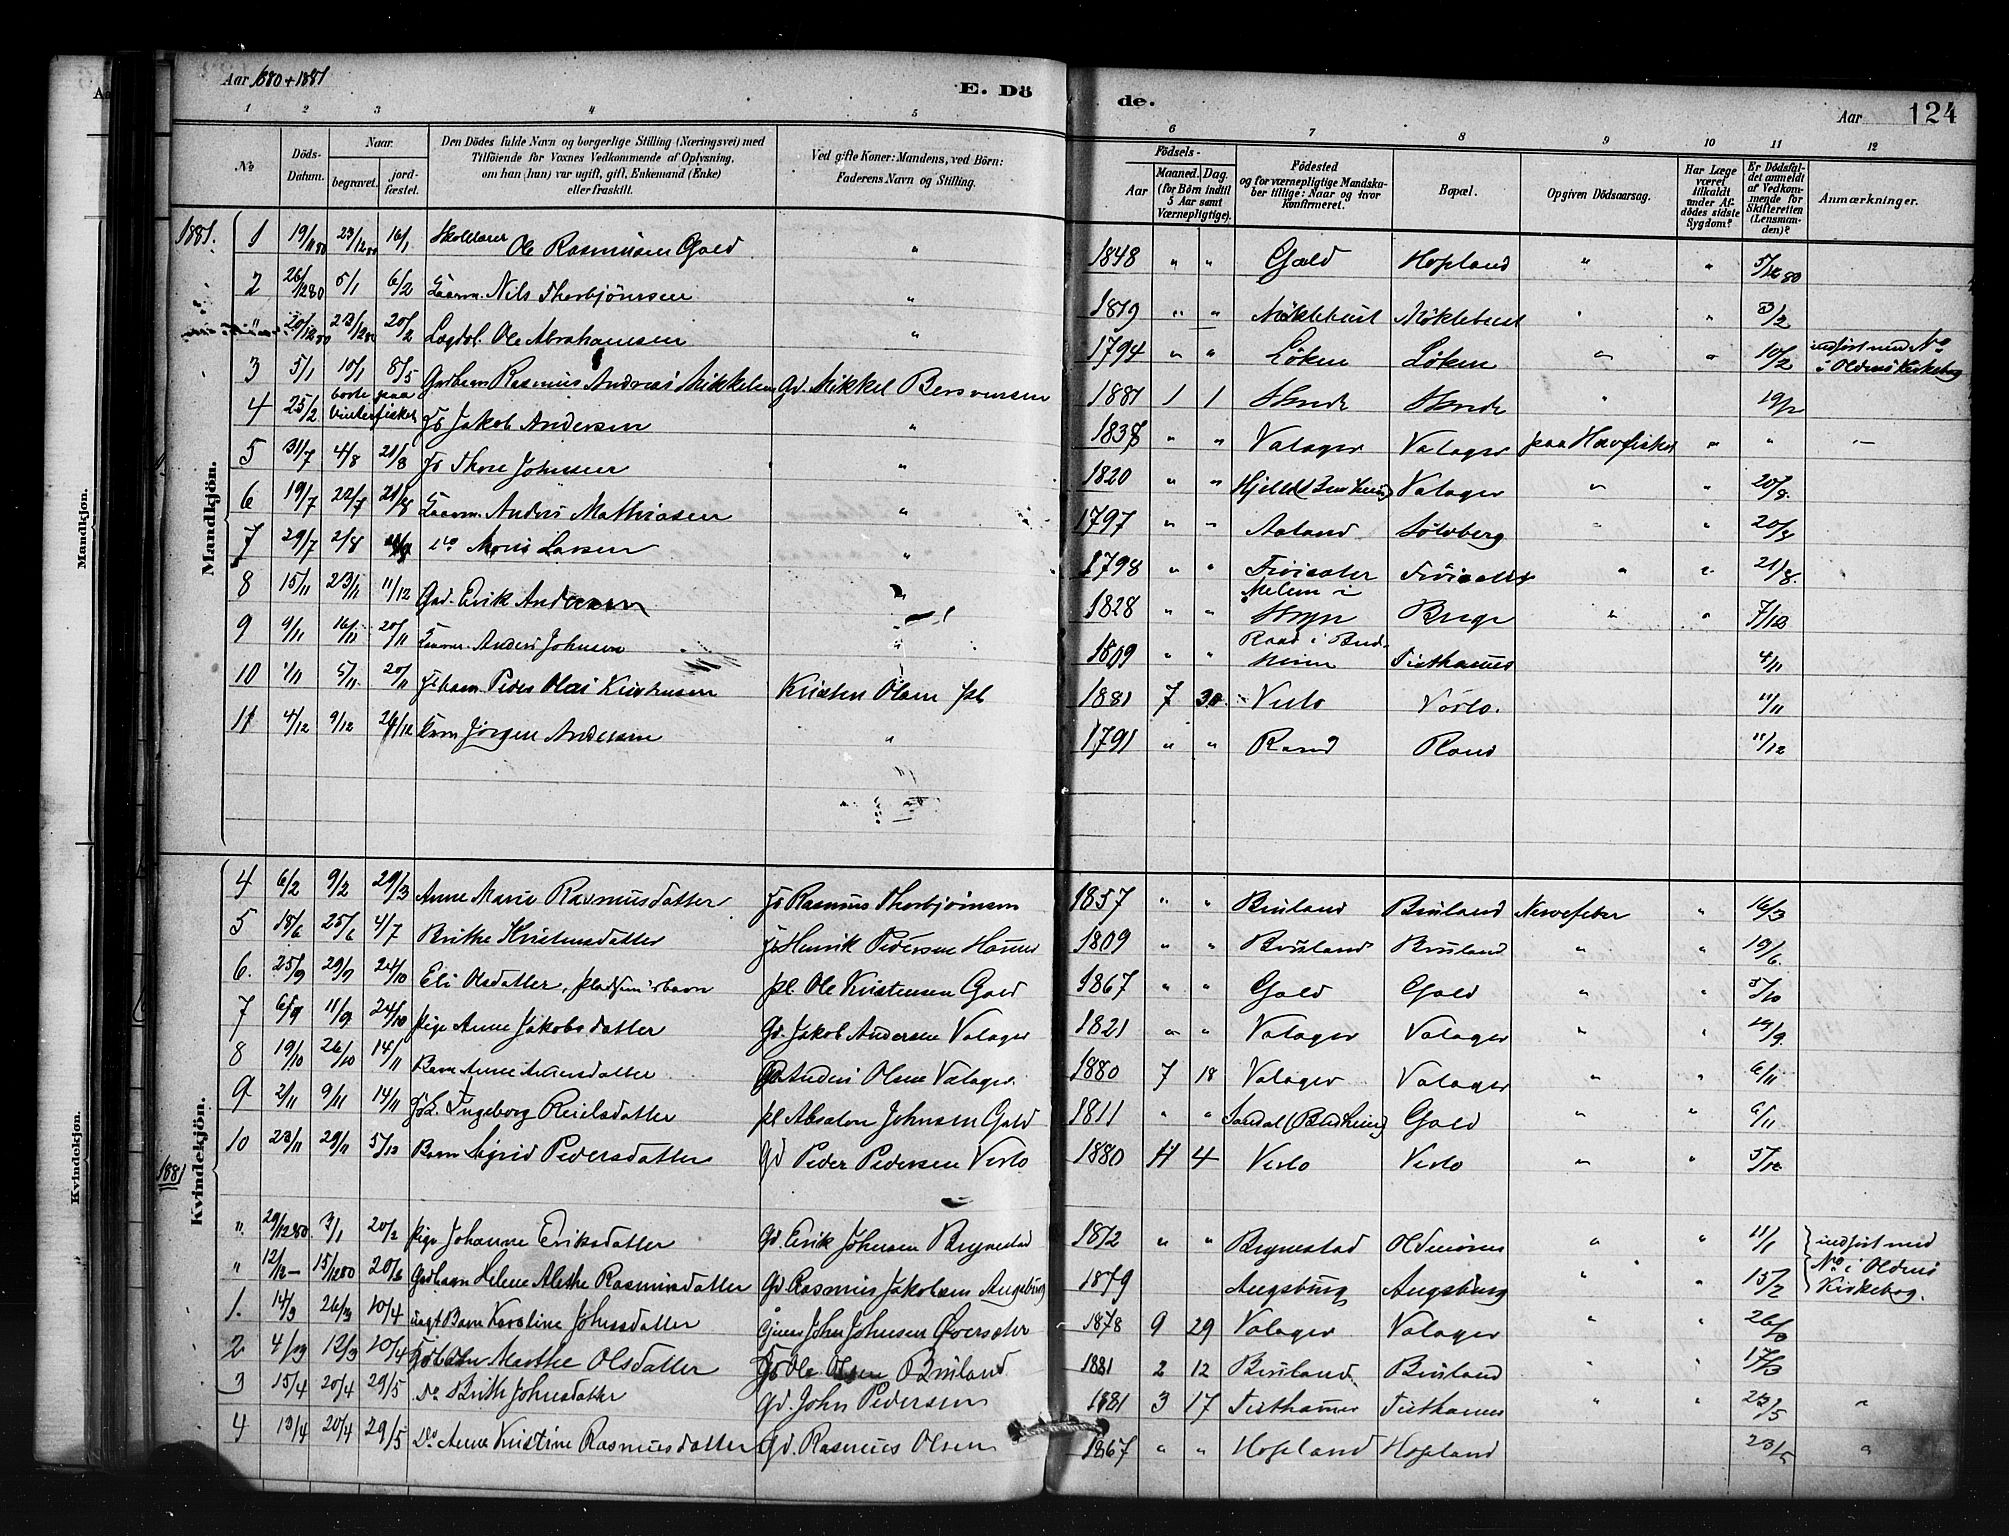 Aar 1880+1881
E. Dö
de.
Aar
124
1 2 3 4 5 6 7 8 9 10 11 12
No
Döds-Datum.
Naar.
begravet.
jord-fæstet.
Den Dödes fulde Navn og borgerlige Stilling (Næringsvei) med
Tilföiende for Voxnes Vedkommende af Oplysning,
om han (hun) var ugift, gift, Enkemand (Enke)
eller fraskilt.
Ved gifte Koner: Mandens, ved Börn:
Faderens Navn og Stilling.
Födsels-
Aar
Maaned. Dag.
(for Börn indtil 5 Aar samt Værnepligtige).
Födested
og for værnepligtige Mandskaber tillige: Naar og hvor Konfirmeret.
Bopæl.
Opgiven Dödsaarsag.
Har Læge været tilkaldt under Afdödes sidste Sygdom?
Er Dödsfaldet anmeldt af Vedkommende for Skifteretten (Lensmanden)?
Anmærkninger.
Mandkjön.
1881. 1 19/11 80 23/12 80 16/1 Skolelærer Ole Rasmusen Gald " 1848 " " Gald Hopland " "
2 26/12 80 5/1 6/2 Nils Thorbjörnsen " 1819 " " Möklebust Möklebust " " 3/2
" 20/12 80 23/12 80 20/2 Lægdsl. Ole Abrahamsen " 1794 " " Löken Löken " " 10/2 indfört med No i Oldens Kirkebog
3 5/1 10/1 8/5 Gdbarn Rasmus Andreas Mikkelsen Gd. Mikkel Bersvensen 1881 1 1 Skrede Skrede " 19/2
4 25/2 borte paa Vinterfisket Fö Jakob Andersen " 1838 " " Valager Valager paa Havfisket " " —
5 31/7 4/8 21/8 Fö Thore Johnsen " 1820 " " Valager " " 20/8.
6 19/7 22/7 21/8 Anders Mathiasen " 1797 " " Aaland Sölvberg " " 20/8
7 29/7 2/8 Do Mons Larsen " 1798 " " " " 21/8.
8 15/11 23/11 11/12 Gd. Erik Andersen " 1828 " " Melem i Stryn " " 7/12
9 9/11 16/11 20/11 Anders Johnsen " 1809 " " Tisthamer 4/11
10 1/11 5/11 20/11 Peder Olai Kristensen Kristen Olsen Pl 1881 7 30 Verlo Verlo. 11/11
11 4/12 9/12 Jörgen Andersen " 1791 " " Rand Rand 11/12
Kvindekjön.
4 6/2 9/2 29/3 Anne Marie Rasmusdatter Fö Rasmus Thorbjörnsen 1857 " " Bruland Bruland Nervefeber " 16/3
5 18/6 25/6 4/7 Brithe Kristensdatter Fö Henrik Pedersen 1809 " " Bruland Bruland " " 19/6.
6. 25/9 29/9 24/10 Eli Olsdatter, pl. Ole Kristensen Gald 1867 " " Gald Gald " " 5/10
7 6/9 11/9 24/10 Pige Anne Jakobsdatter Gd. Jakob Andersen Valager 1821 " " Valager Valager " " 19/9.
8 19/10 26/10 14/11 Barn Anne Andersdatter Anders Olsen Valager. 1880 7 18 Valager Valager " " 6/11
9 2/11 9/11 14/11 Ingeborg Reielsdatter pl Absalon Johnsen Gald 1811 " " Gald " " 6/11
10 23/11 29/11 5/12 Barn Sigrid Pedersdatter Gd Peder Pedersen Verlo 1880 11 4 Verlo Verlo " " 5/12
1881
" 29/12 80. 3/1 20/2 Pige Johanne Eriksdatter Gd. Erik Johnsen Brynestad 1872 " " Brynestad Oldenören " " 11/1 indfört med
" 12/12 — 15/12 80 20/2 Gdbarn Helene Alethe Rasmusdatter Gd. Rasmus Jakobsen Augsburg 1879 Augsburg Augsburg " " 15/2 No i Oldens Kirkebog.
1. 14/3 26/3 10/4 uægt Barn Karoline Johnsdatter John Johnsen Övresæter 1878 9 29 Valager Valager " " 26/3
2 4/3 12/3 10/4 Marthe Olsdatter Fö Ole Olsen Bruland 1881 2 12 Bruland Bruland " 17/3
3 15/4 20/4 29/5 Do Brith Johnsdatter Gd. John Pedersen 1881 3 17 Tisthamer Tisthamer " " 23/5 "
4 13/4 20/4 29/5 Do. Anne Kristine Rasmusdatter Gd. Rasmus Olsen 1867 " " Hopland Hopland " " 23/5 "
Mandkjön.
Kvindekjön.